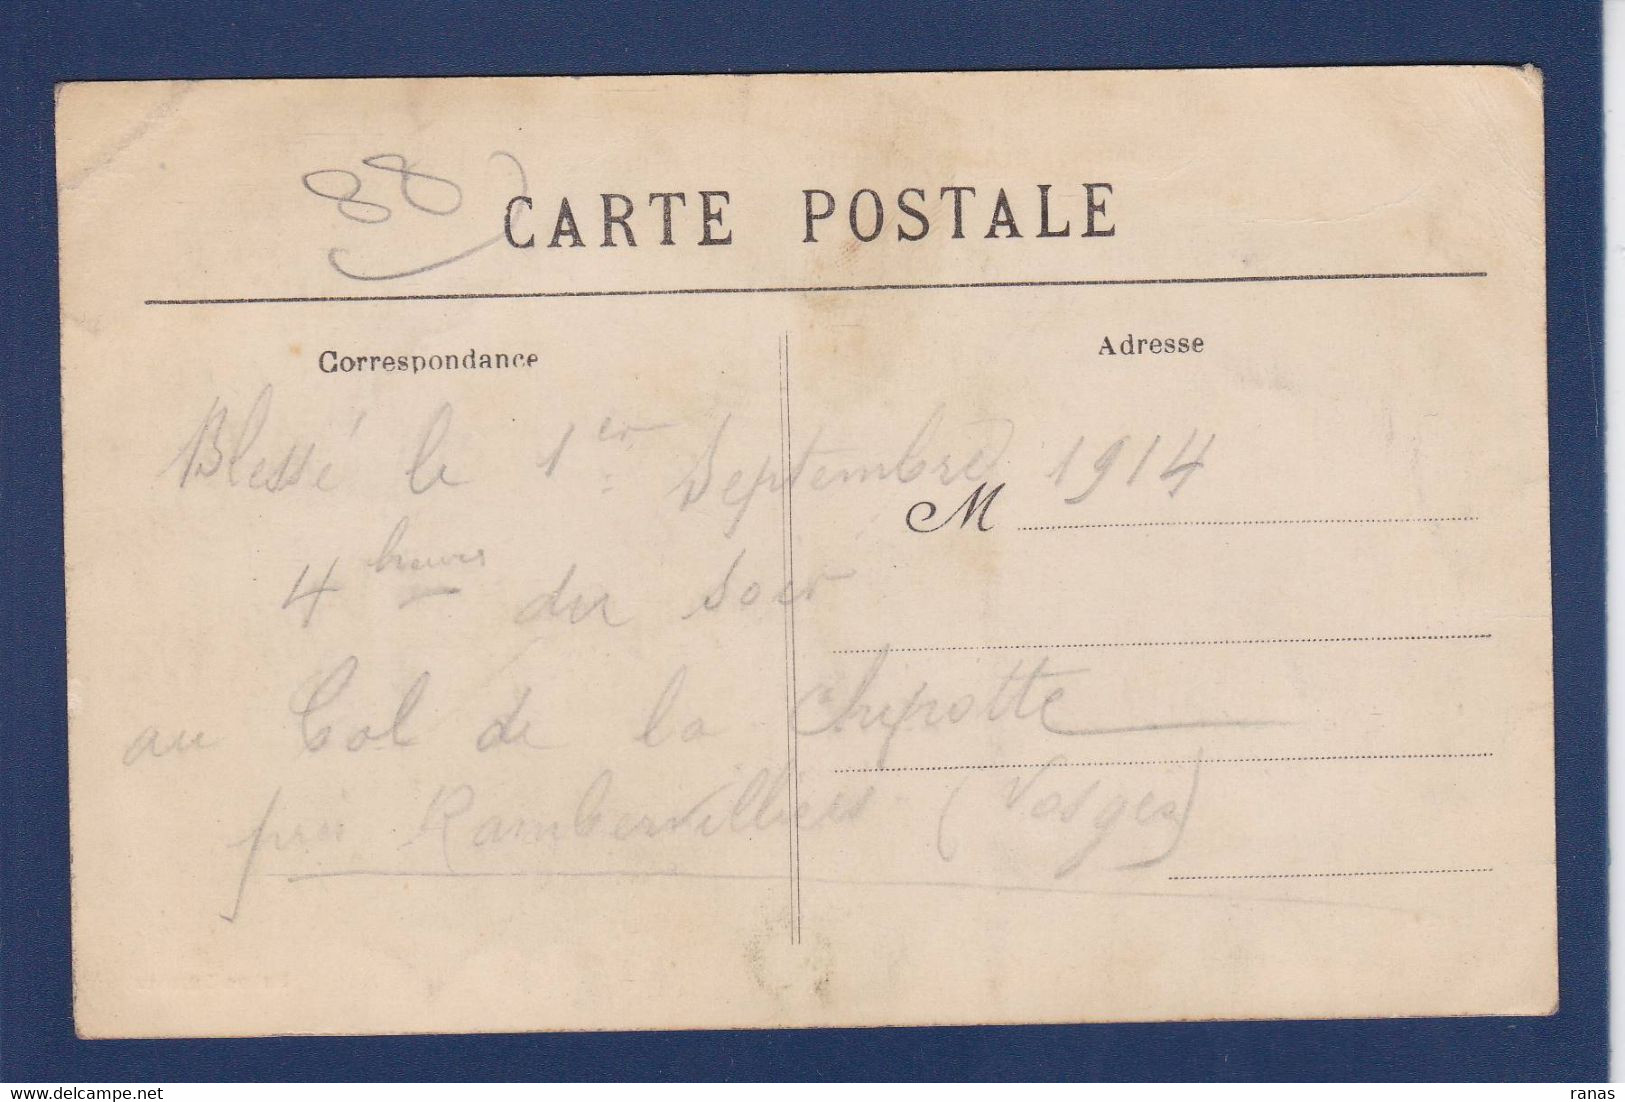 88
CARTE POSTALE
Correspondance
Adresse
Blessé le 1er Septembre 1914
M
4 heures du soir
au Col de la Chipotte
près Rambervillers (Vosges)
delcampe.net
ranas